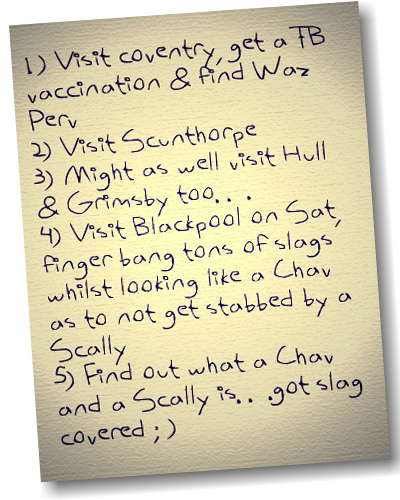 1) Visit coventry, get a TB
vaccination & find Waz
Perv
2) Visit Scunthorpe
3) Might as well visit Hull
& Grimsby too...
4) Visit Blackpool on Sat,
finger bang tons of slags
whilst looking like a Chav
as to not get stabbed by a
Scally
5) Find out what a Chav
and a Scally is...got slag
covered ;)